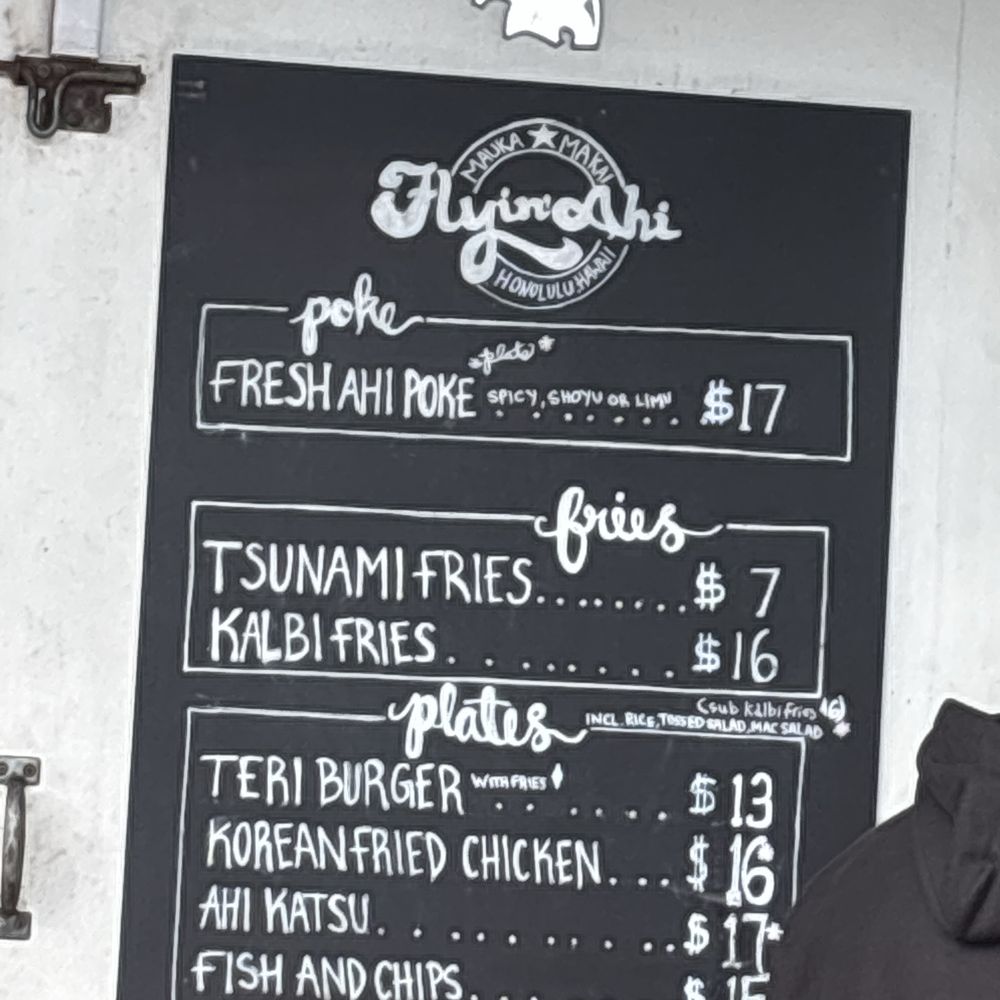 MAUKA ★ MAKAI
Flyin' Ahi
HONOLULU, HAWAII
poke
*plate*
FRESH AHI POKE SPICY, SHOYU OR LIMU ...... $17
fries
TSUNAMI FRIES........ $ 7
KALBI FRIES........ $16
plates
(sub kalbi fries
INCL. RICE, TOSSED SALAD, MAC SALAD
TERI BURGER WITH FRIES ...... $13
KOREAN FRIED CHICKEN.... $16
AHI KATSU.......... $17*
FISH AND CHIPS $15